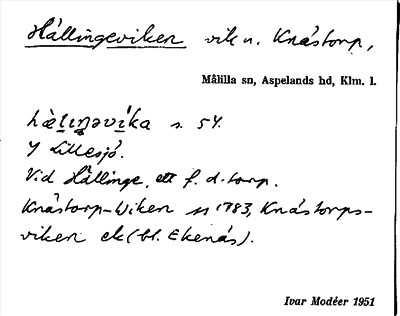 Hällingeviken vik n. Knästorp,
Målilla sn, Aspelands hd, Klm. l.
s. 54.
I Lillesjö.
Vid Hällinge, ett f. d. torp.
Knästorp-Wiken 1783, Knästorps-
viken ek (bl. Ekenäs).
Ivar Modéer 1951